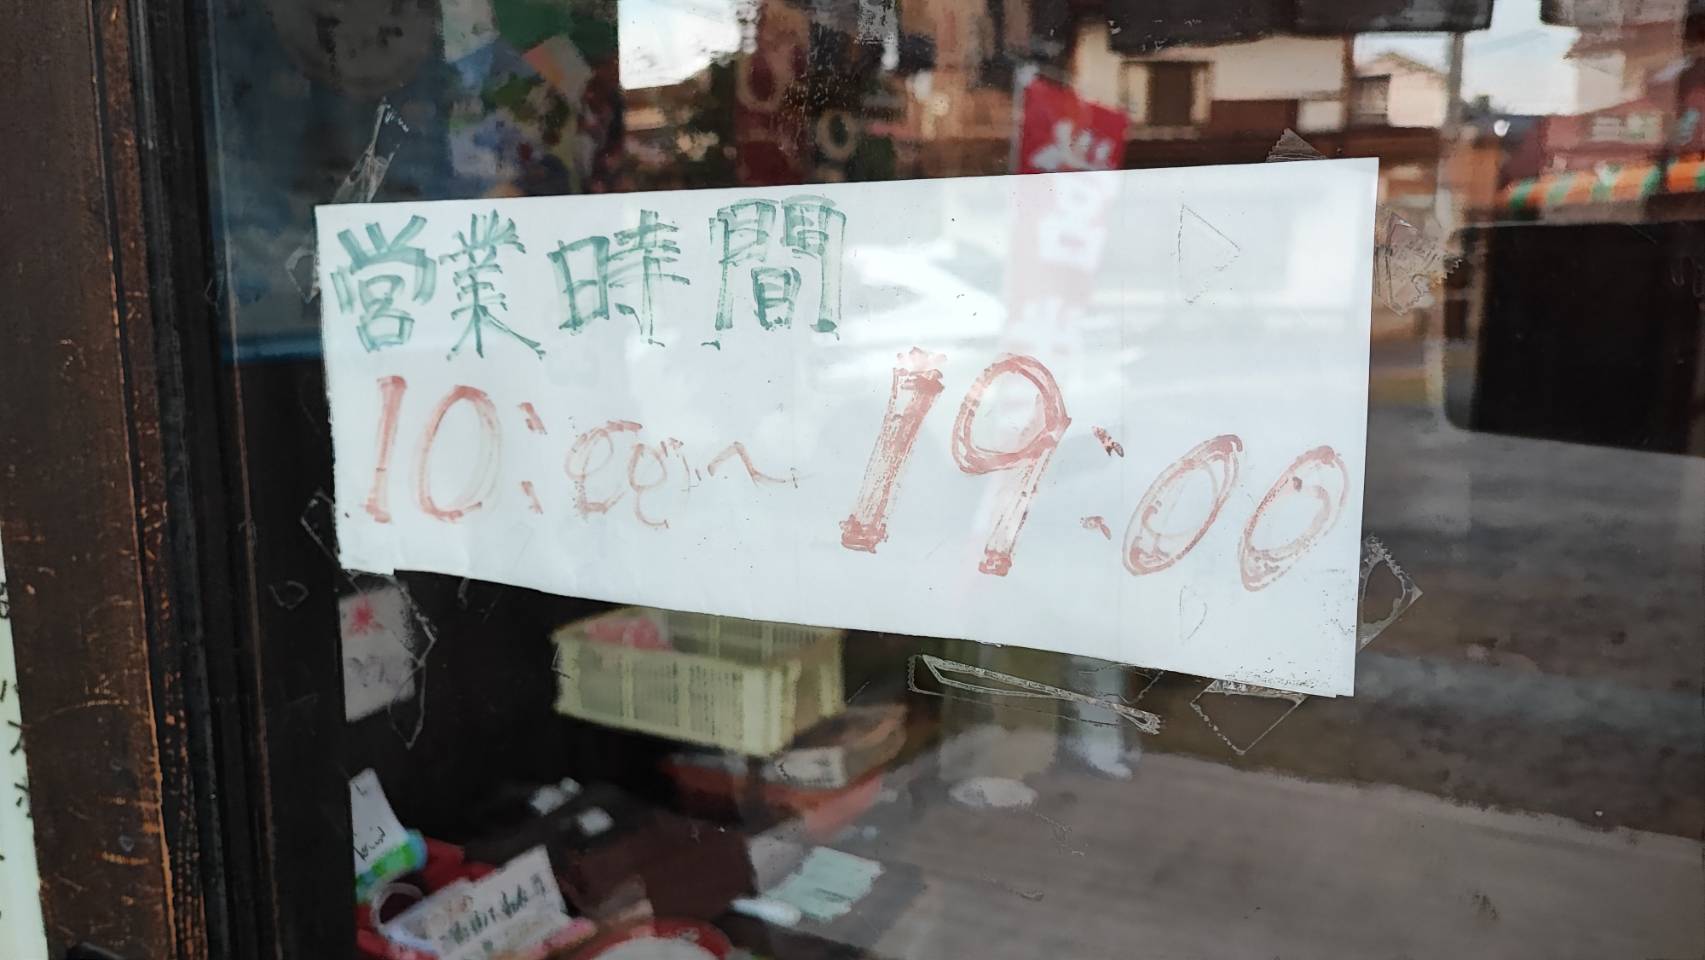 営業時間
10:00~19:00